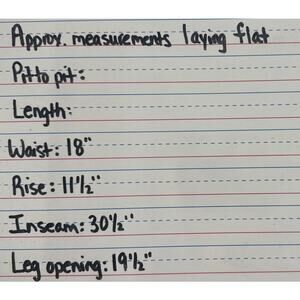 Approx. measurements laying flat
Pit to pit:
Length:
Waist: 18"
Rise: 11½"
Inseam: 30½"
Leg opening: 19½"